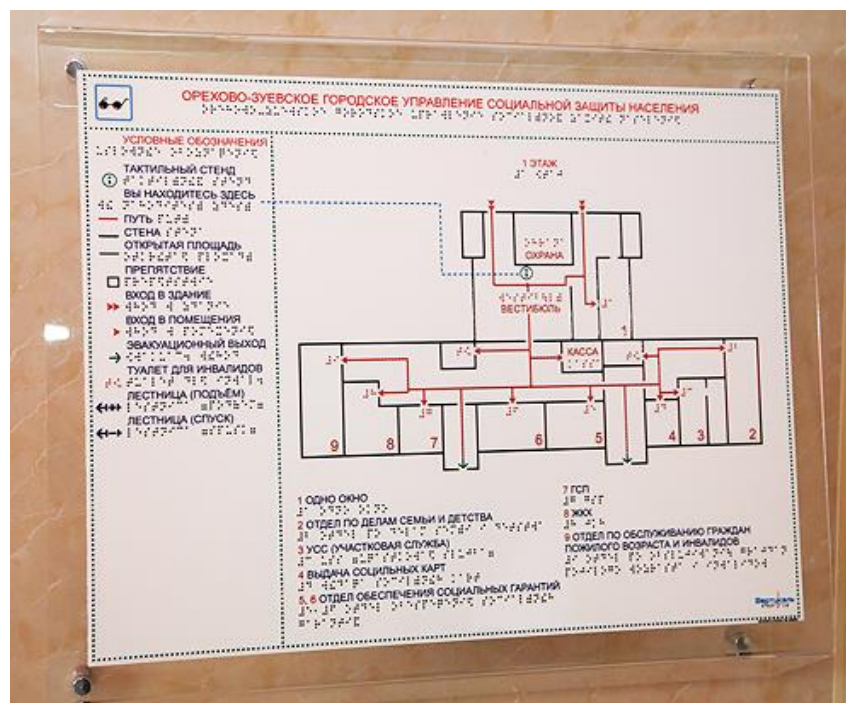 ОРЕХОВО-ЗУЕВСКОЕ ГОРОДСКОЕ УПРАВЛЕНИЕ СОЦИАЛЬНОЙ ЗАЩИТЫ НАСЕЛЕНИЯ
УСЛОВНЫЕ ОБОЗНАЧЕНИЯ
ТАКТИЛЬНЫЙ СТЕНД
ВЫ НАХОДИТЕСЬ ЗДЕСЬ
ПУТЬ
СТЕНА
ОТКРЫТАЯ ПЛОЩАДЬ
ПРЕПЯТСТВИЕ
ВХОД В ЗДАНИЕ
ВХОД В ПОМЕЩЕНИЯ
ЭВАКУАЦИОННЫЙ ВЫХОД
ТУАЛЕТ ДЛЯ ИНВАЛИДОВ
ЛЕСТНИЦА (ПОДЪЁМ)
ЛЕСТНИЦА (СПУСК)
1 ЭТАЖ
ОХРАНА
ВЕСТИБЮЛЬ
1
КАССА
9 8 7 6 5 4 3 2
1 ОДНО ОКНО
2 ОТДЕЛ ПО ДЕЛАМ СЕМЬИ И ДЕТСТВА
3 УСС (УЧАСТКОВАЯ СЛУЖБА)
4 ВЫДАЧА СОЦИЛЬНЫХ КАРТ
5, 6 ОТДЕЛ ОБЕСПЕЧЕНИЯ СОЦИАЛЬНЫХ ГАРАНТИЙ
7 ГСП
8 ЖКХ
9 ОТДЕЛ ПО ОБСЛУЖИВАНИЮ ГРАЖДАН
ПОЖИЛОГО ВОЗРАСТА И ИНВАЛИДОВ